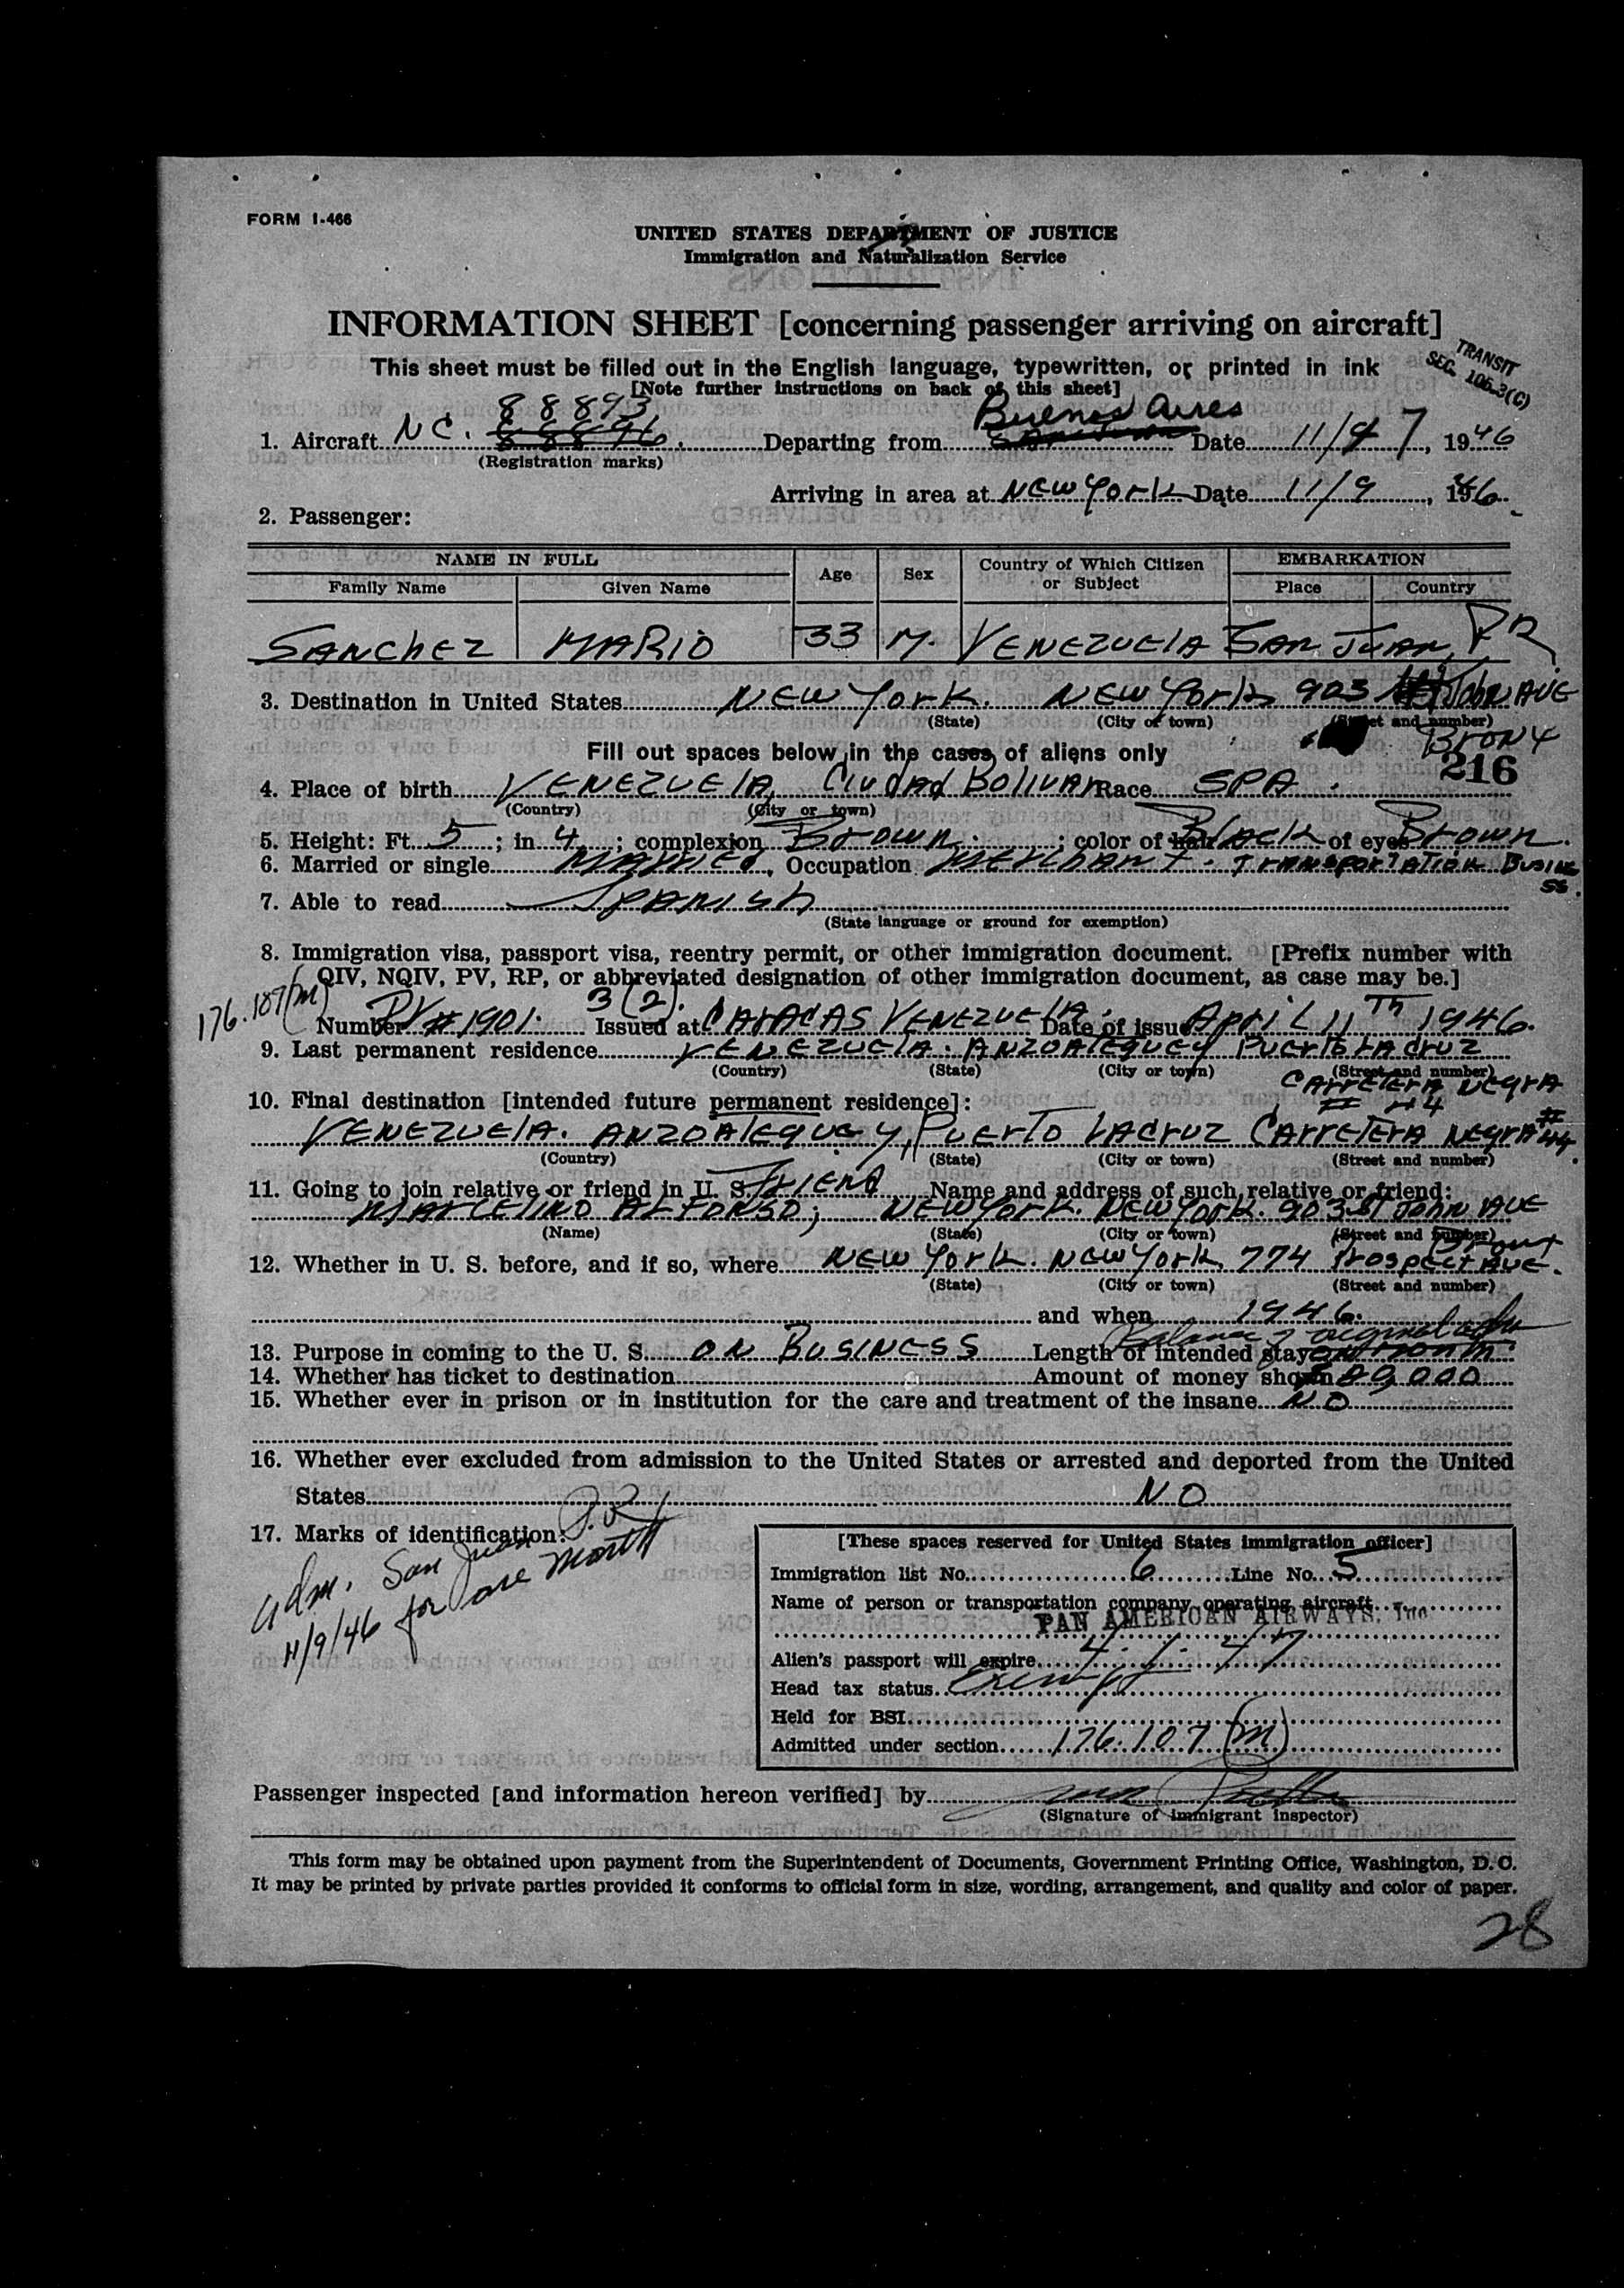 FORM I-466
UNITED STATES DEPARTMENT OF JUSTICE
Immigration and Naturalization Service
INFORMATION SHEET [concerning passenger arriving on aircraft]
This sheet must be filled out in the English language, typewritten, or printed in ink
[Note further instructions on back of this sheet]
TRANSIT
SEC. 106.3(C)
88893 Buenos Aires
1. Aircraft NC. 88896. Departing from Date 11/7, 1946
(Registration marks)
Arriving in area at NEW York Date 11/9, 1946.
2. Passenger:
NAME IN FULL Age Sex Country of Which Citizen or Subject EMBARKATION
Family Name Given Name Place Country
SANCHEZ MARIO 33 M. VENEZUELA SAN JUAN, PR
3. Destination in United States NEW York. NEW York 903 St John AVE
(State) (City or town) (Street and number)
Bronx
Fill out spaces below in the cases of aliens only
216
4. Place of birth VENEZUELA, Ciudad BOLIVAR Race SPA.
(Country) (City or town)
5. Height: Ft. 5; in 4; complexion Brown; color of hair Black of eyes Brown.
6. Married or single Married, Occupation MERCHANT. TRANSPORTATION BUSINESS.
7. Able to read SPANISH
(State language or ground for exemption)
8. Immigration visa, passport visa, reentry permit, or other immigration document. [Prefix number with
QIV, NQIV, PV, RP, or abbreviated designation of other immigration document, as case may be.]
176.107(m)
3(2).
Number PV # 1901. Issued at CARACAS VENEZUELA. Date of issue April 11Th 1946.
9. Last permanent residence VENEZUELA. ANZOATEGUEY PUERTO LA CRUZ
(Country) (State) (City or town) (Street and number)
CARRETERA NEGRA
# 44
10. Final destination [intended future permanent residence]:
VENEZUELA. ANZOATEGUEY, PUERTO LACRUZ CARRETERA NEGRA # 44.
(Country) (State) (City or town) (Street and number)
11. Going to join relative or friend in U. S. FRIEND Name and address of such relative or friend:
MARCELINO ALFONSO; NEW York. NEW York. 903 St John AVE
(Name) (State) (City or town) (Street and number)
Bronx
12. Whether in U. S. before, and if so, where NEW York. NEW York, 774 Prospect AVE.
(State) (City or town) (Street and number)
and when 1946.
Balance of original adm
13. Purpose in coming to the U. S. ON BUSINESS Length of intended stay month
14. Whether has ticket to destination Amount of money shown
15. Whether ever in prison or in institution for the care and treatment of the insane NO
16. Whether ever excluded from admission to the United States or arrested and deported from the United
States NO
17. Marks of identification:
Adm. San Juan P.R.
11/9/46 for one month
[These spaces reserved for United States immigration officer]
Immigration list No. 6 Line No. 5
Name of person or transportation company operating aircraft
PAN AMERICAN AIRWAYS, Inc
Alien's passport will expire 4. 1. 47
Head tax status exempt
Held for BSI
Admitted under section 176.107(m)
Passenger inspected [and information hereon verified] by
(Signature of immigrant inspector)
This form may be obtained upon payment from the Superintendent of Documents, Government Printing Office, Washington, D. C.
It may be printed by private parties provided it conforms to official form in size, wording, arrangement, and quality and color of paper.
28